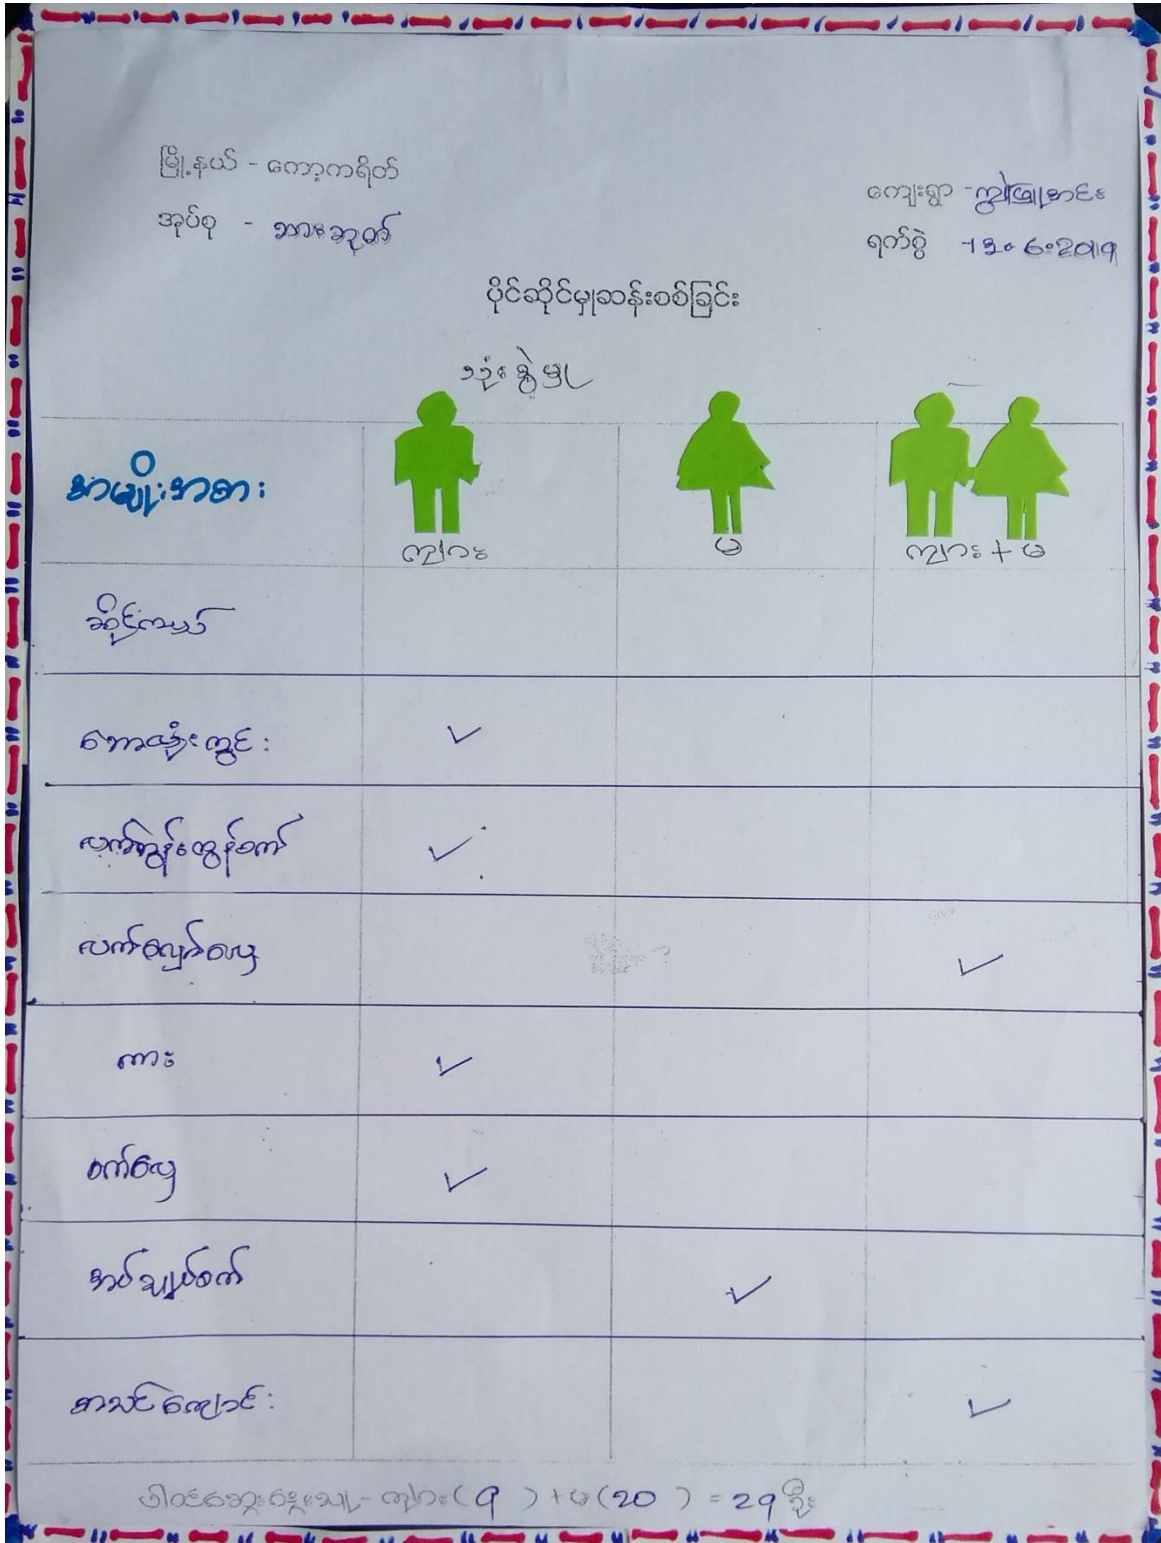 မြို့နယ် - ကော့ကရိတ်
အုပ်စု - ဘားဘုတ်
ကျေးရွာ - ကွဲဖြူအင်း
ရက်စွဲ - 13.6.2019
ပိုင်ဆိုင်မှုဆန်းစစ်ခြင်း
သုံးစွဲမှု
အမျိုးအစား
ကျား မ ကျား + မ
ဆိုင်ကယ်
ဘောလုံးကွင်း
လက်တွန်းထွန်စက်
လက်လှော်လှေ
ကား
စက်လှေ
အပ်ချုပ်စက်
စာသင်ကျောင်း
ပါဝင်ဆွေးနွေးသူ - ကျား ( 9 ) + မ ( 20 ) = 29 ဦး